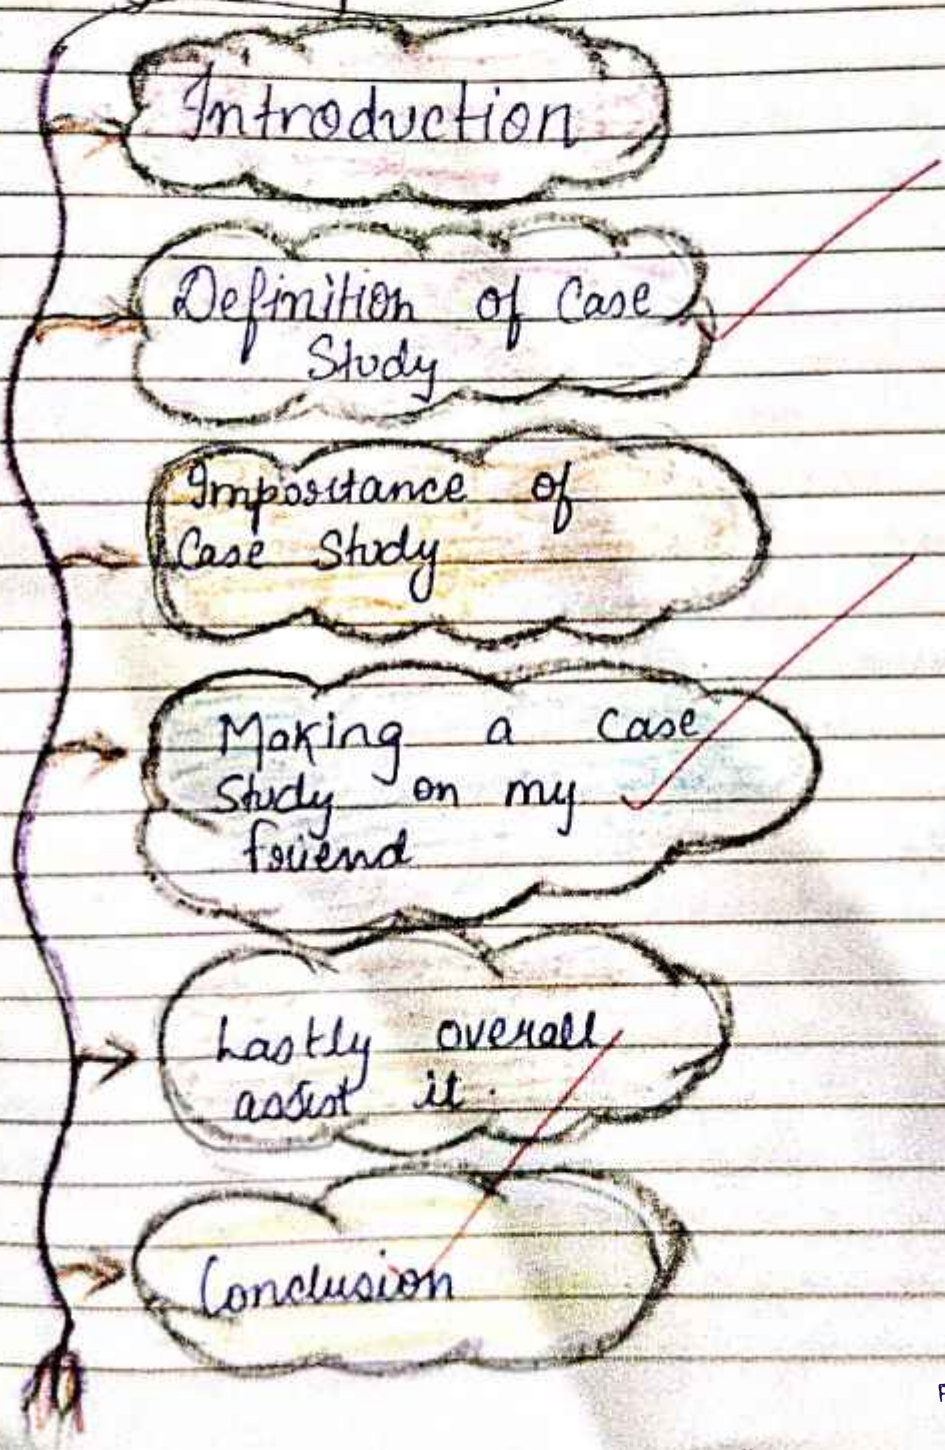 Introduction
Definition of Case
Study
Importance of
Case Study
Making a case
Study on my
friend
Lastly overall
assist it.
Conclusion